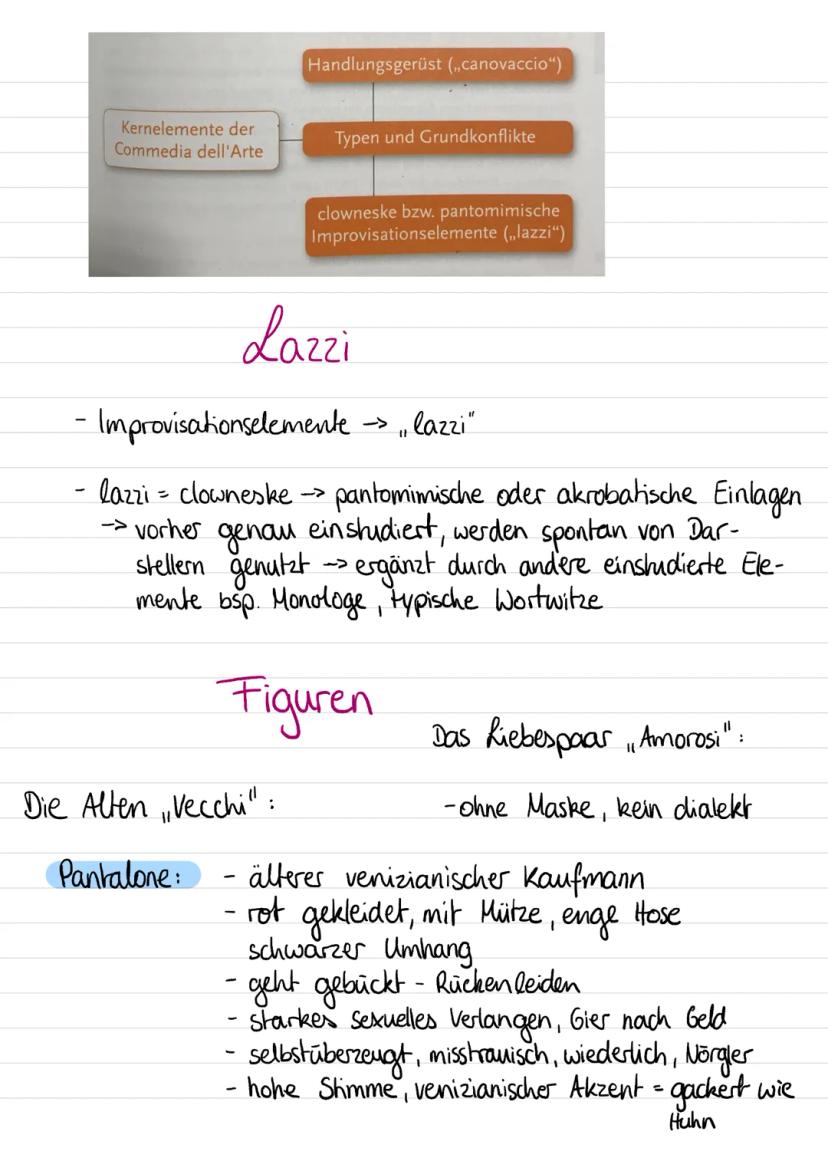 Handlungsgerüst („canovaccio“)
Kernelemente der
Commedia dell'Arte
Typen und Grundkonflikte
clowneske bzw. pantomimische
Improvisationselemente („lazzi“)
Lazzi
- Improvisationselemente -> „lazzi"
- lazzi = clowneske -> pantomimische oder akrobatische Einlagen
-> vorher genau einstudiert, werden spontan von Dar-
stellern genutzt -> ergänzt durch andere einstudierte Ele-
mente bsp. Monologe, typische Wortwitze
Figuren
Das Liebespaar „Amorosi":
Die Alten „Vecchi":
- ohne Maske, kein dialekt
Pantalone:
- älterer venizianischer Kaufmann
- rot gekleidet, mit Mütze, enge Hose
schwarzer Umhang
- geht gebückt - Rückenleiden
- starkes sexuelles Verlangen, Gier nach Geld
- selbstüberzeugt, misstrauisch, wiederlich, Nörgler
- hohe Stimme, venizianischer Akzent = gackert wie
Huhn